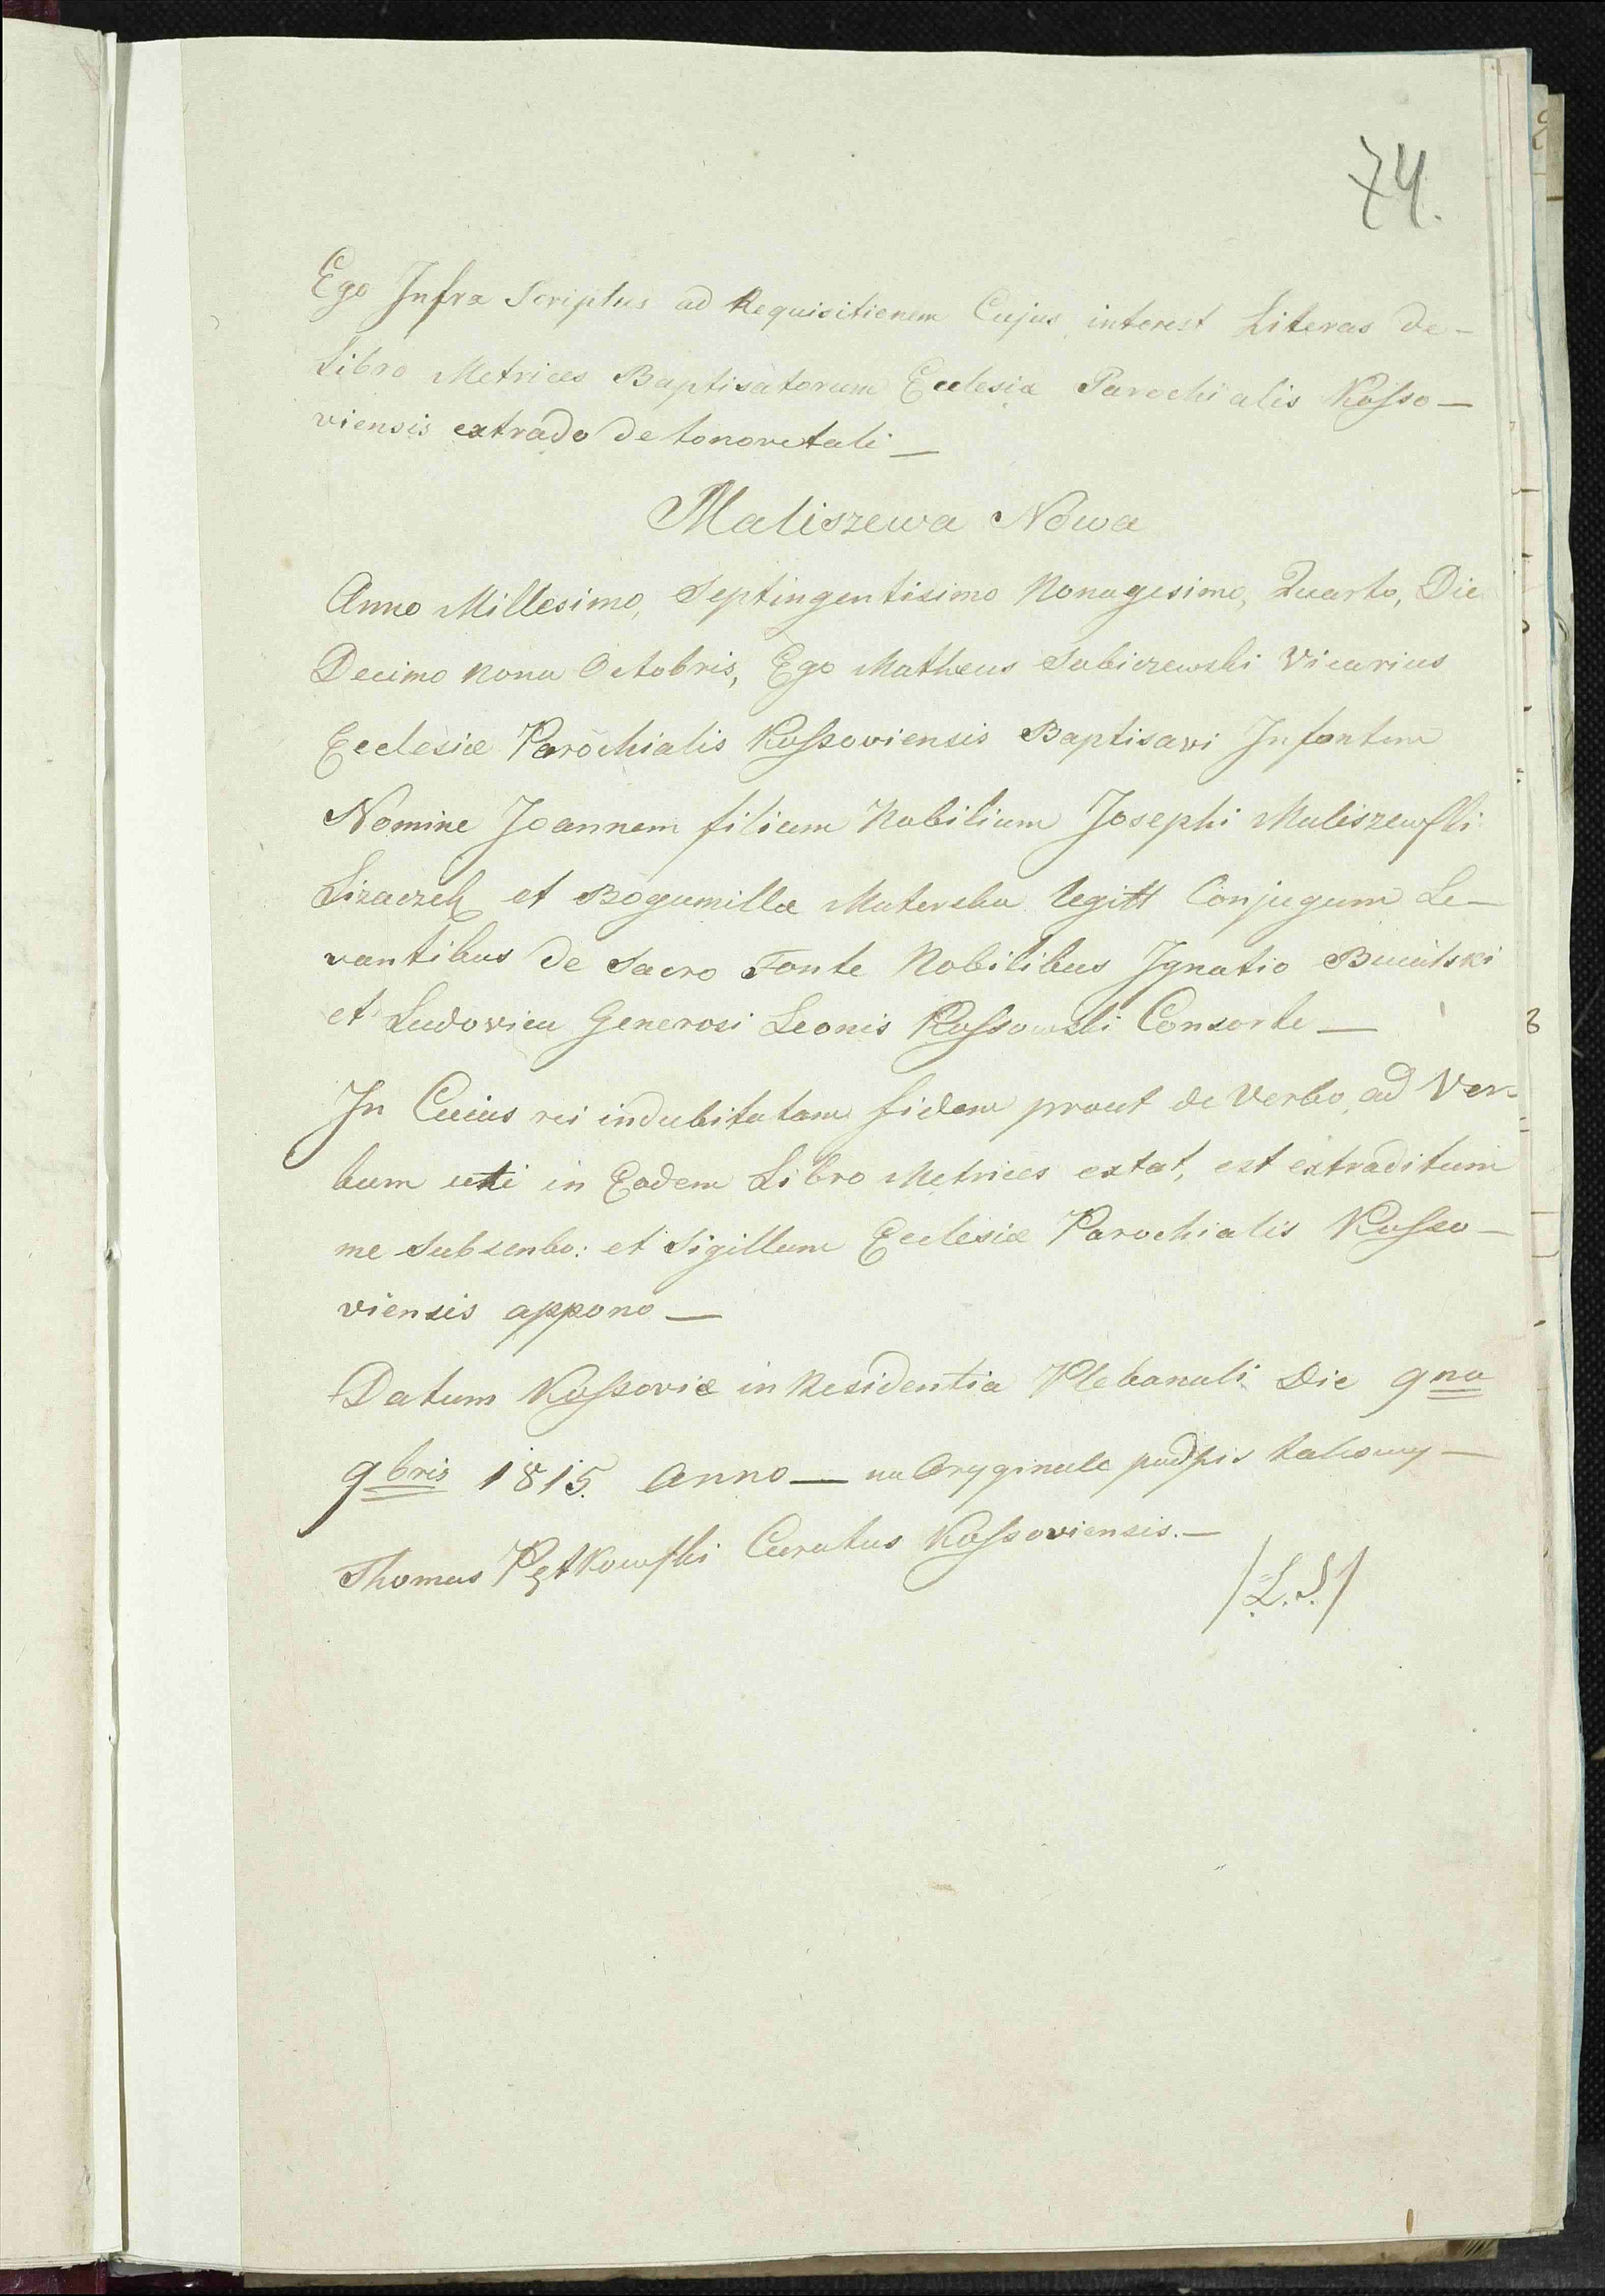 74.
Ego Infra Scriptus ad Requisitionem Cujus interest Literas de-
Libro Metrices Baptisatorum Ecclesiæ Parochialis Kosso-
viensis extrado de tonore tali —
Maliszewa Nowa
Anno Millesimo, Septingentisimo Nonagesimo, Quarto, Die
Decimo Nona Octobris, Ego Matheus Sabiczewski Vicarius
Ecclesiæ Parochialis Kossoviensis Baptisavi Infantem
Nomine Joannem filium Nobilium Josephi Maliszewski
et Bogumilla legitt Conjugum Le-
vantibus de Sacro Fonte Nobilibus Ignatio
et Ludovica Generosi Leonis Kossowski Consorte —
In Cuius rei indubitatam fidem prout de Verbo ad Ver-
bum uti in Eodem Libro Metrices extat, est extraditum
me Subscribo: et Sigillum Ecclesiæ Parochialis Kosso-
viensis appono —
Datum Kossoviæ in Residentia Plebanali Die 9na
9bris 1815. Anno — na Oryginale podpis takowy —
Thomas Pętkowski Curatus Kossoviensis. —
/L.S/